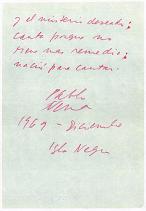 y el misterio deseado;
canto porque no
tiene mas remedio;
nació para cantar.
Pablo
Neruda
1969 - Diciembre
Isla Negra